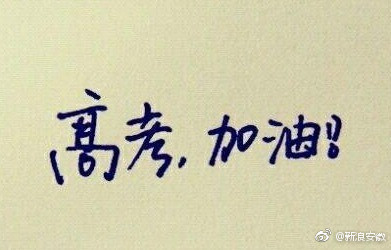 高考,加油!!
@新浪安徽